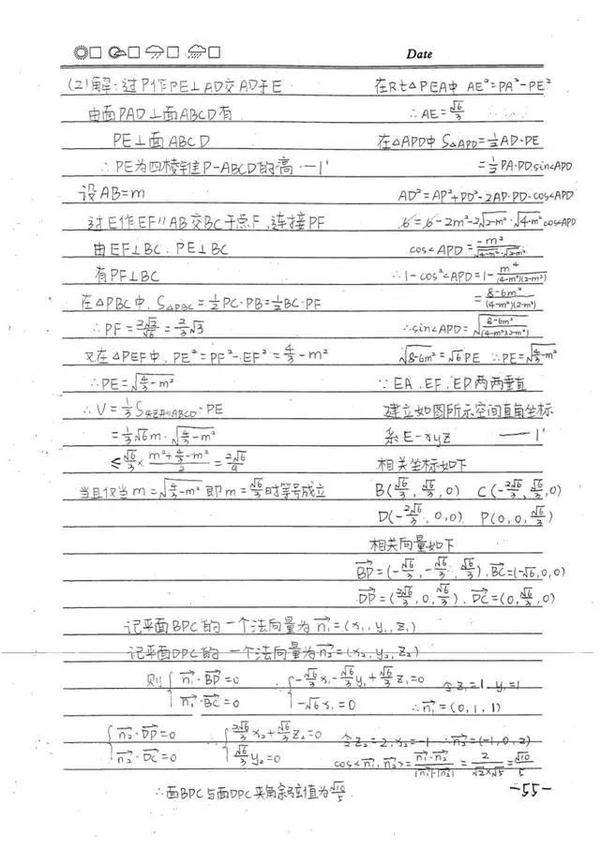 Date
(2)解:过P作PE⊥AD交AD于E
由面PAD⊥面ABCD有
PE⊥面ABCD
∴PE为四棱锥P-ABCD的高 —1'
设AB=m
过E作EF∥AB交BC于点F,连接PF
由EF⊥BC, PE⊥BC
有PF⊥BC
在△PBC中, S△PBC=½PC·PB=½BC·PF
∴PF=2√2/√6=2/3√3
又在△PEF中, PE²=PF²-EF²=4/3-m²
∴PE=√(4/3-m²)
∴V=1/3S矩形ABCD·PE
=1/3√6m·√(4/3-m²)
≤√6/3×(m²+4/3-m²)/2=2√6/9
当且仅当m=√(4/3-m²)即m=√6/3时等号成立
在Rt△PEA中 AE²=PA²-PE²
∴AE=√6/3
在△APD中 S△APD=½AD·PE
=½PA·PDsin∠APD
AD²=AP²+PD²-2AP·PD·cos∠APD
6=6-2m²-2√(2-m²)·√(4-m²)cos∠APD
cos∠APD=-m²/(√(4-m²)·√(2-m²))
∴1-cos²∠APD=1-m⁴/((4-m²)(2-m²))
=(8-6m²)/((4-m²)(2-m²))
∴sin∠APD=√((8-6m²)/((4-m²)(2-m²)))
√(8-6m²)=√6PE ∴PE=√(4/3-m²)
∵EA、EF、ED两两垂直
建立如图所示空间直角坐标
系E-xyz —1'
相关坐标如下
B(√6/3,√6/3,0) C(-2√6/3,√6/3,0)
D(-2√6/3,0,0) P(0,0,√6/3)
相关向量如下
BP→=(-√6/3,-√6/3,√6/3),BC→=(-√6,0,0)
DP→=(2√6/3,0,√6/3),DC→=(0,√6/3,0)
记平面BPC的一个法向量为n₁→=(x₁,y₁,z₁)
记平面DPC的一个法向量为n₂→=(x₂,y₂,z₂)
则{n₁→·BP→=0 ∴{-√6/3x₁-√6/3y₁+√6/3z₁=0 令z₁=1,y₁=1
n₁→·BC→=0 -√6x₁=0 ∴n₁→=(0,1,1)
{n₂→·DP→=0 ∴{2√6/3x₂+√6/3z₂=0 令z₂=2,x₂=-1 ∴n₂→=(-1,0,2)
n₂→·DC→=0 √6/3y₂=0 cos<n₁→,n₂→>=n₁→·n₂→/|n₁→|·|n₂→|=2/(√2×√5)=√10/5
∴面BPC与面DPC夹角余弦值为√10/5
-55-